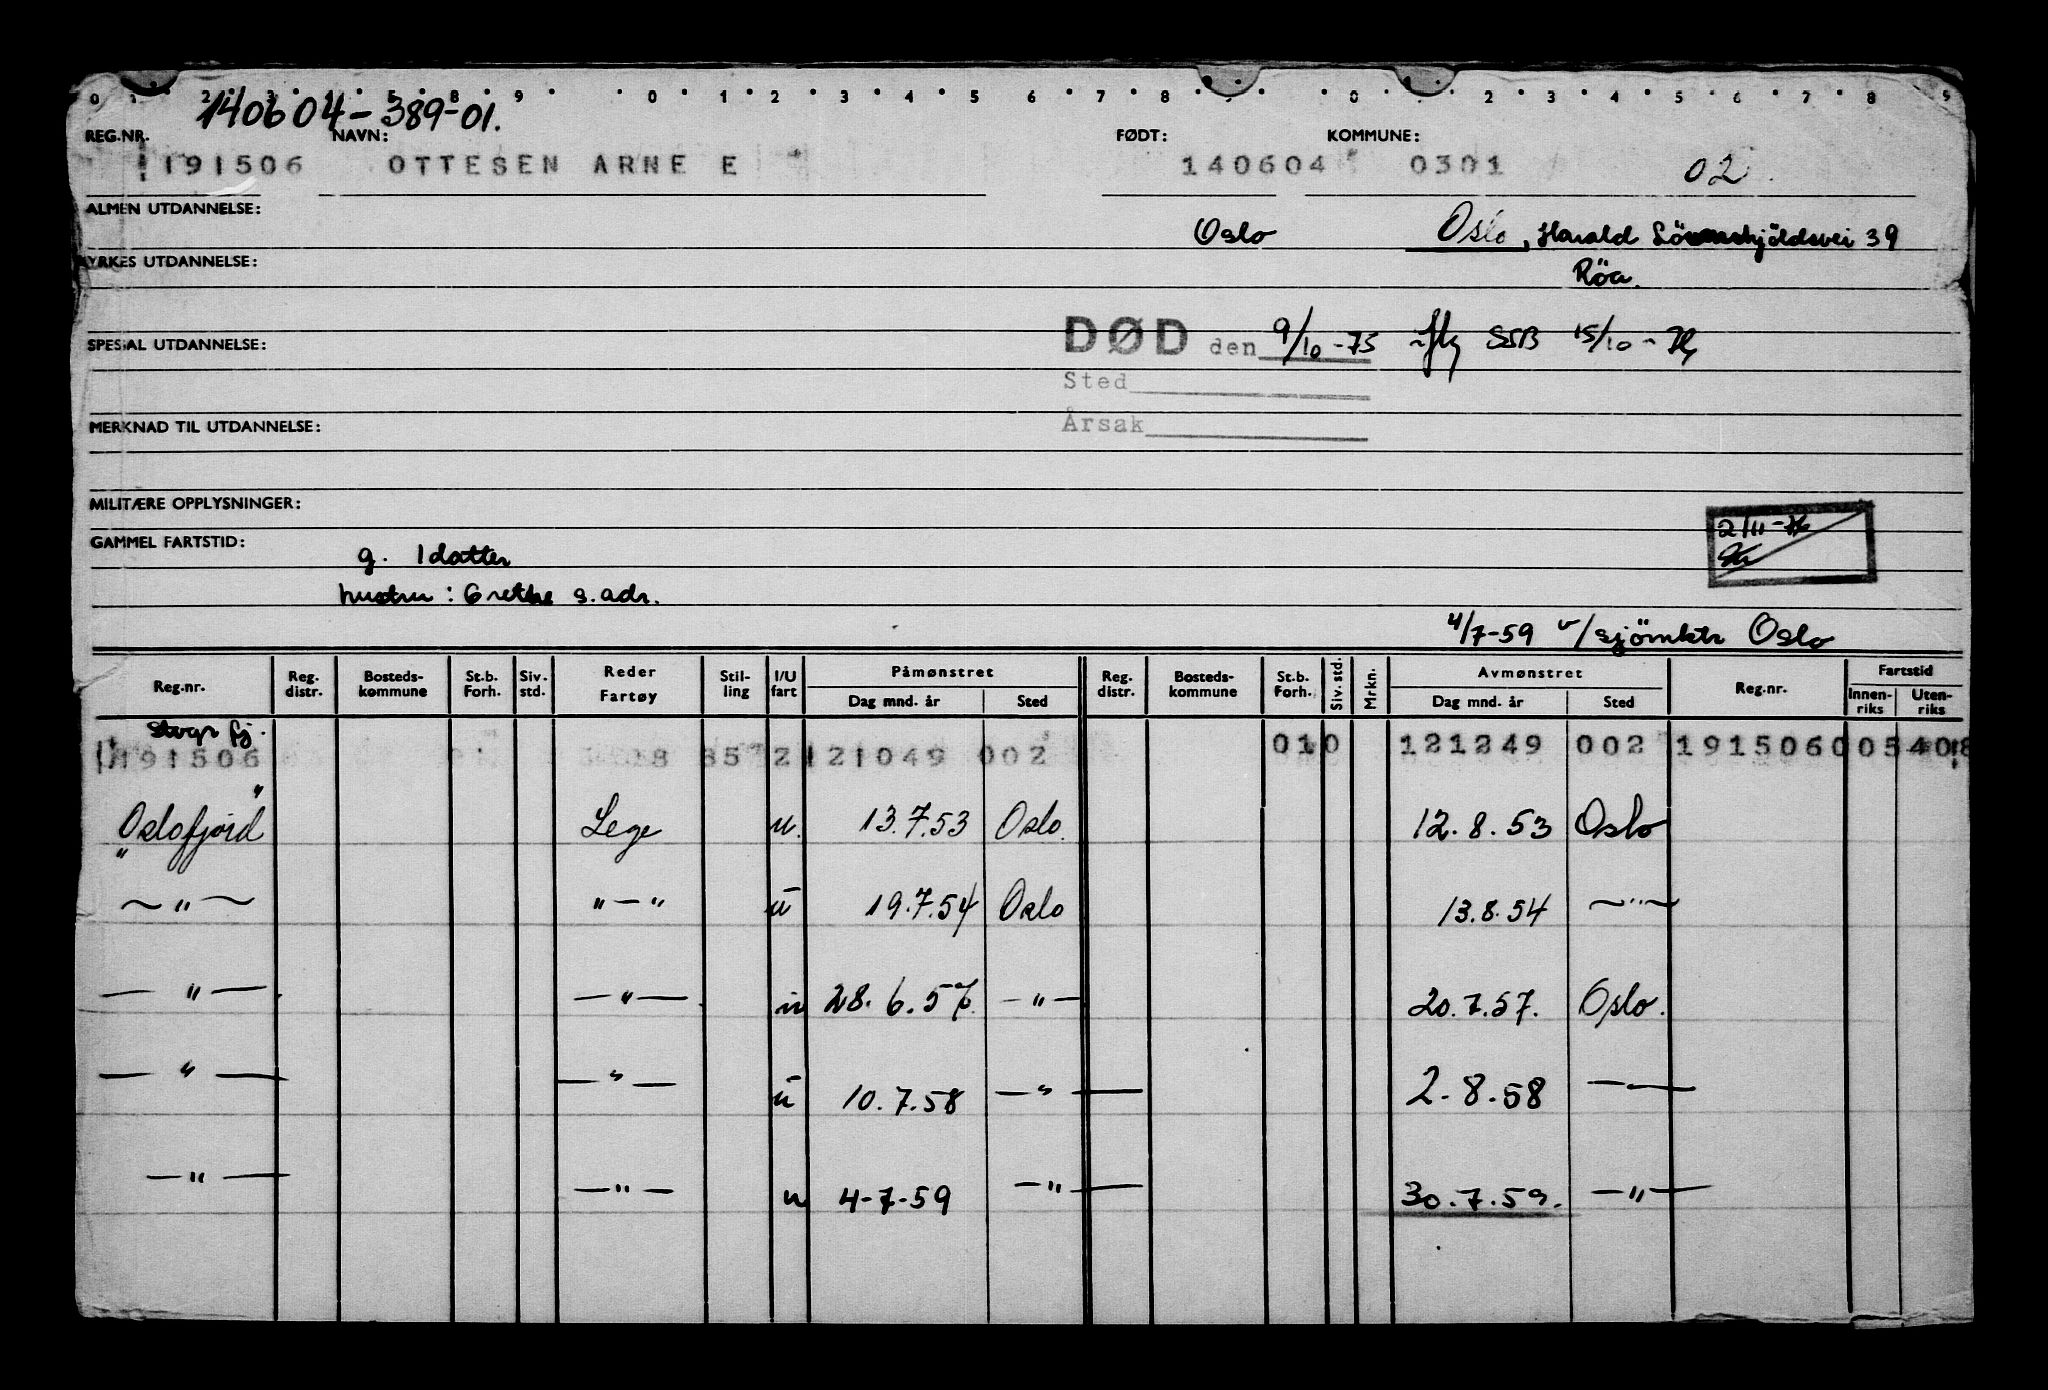 0 1 2 3 4 5 8 9 0 1 2 3 4 5 6 7 8 9 0 2 3 4 5 6 7 8 9
140604-389-01.
REG.NR. NAVN: FØDT: KOMMUNE:
191506 OTTESEN ARNE E 140604 0301 02
ALMEN UTDANNELSE:
Oslo Oslo, Harald Lövenskjöldsvei 39
YRKES UTDANNELSE: Röa.
DØD den 9/10-75 SSB 15/10-
SPESIAL UTDANNELSE:
Sted
MERKNAD TIL UTDANNELSE: Årsak
MILITÆRE OPPLYSNINGER:
2/11-76
GAMMEL FARTSTID: g. 1 datter
hustru: Grethe s. adr.
4/7-59 v/sjömktr Oslo
Reg.nr. Reg. distr. Bosteds-kommune St.b. Forh. Siv. std. Reder Fartøy Stil-ling I/U fart Påmønstret Dag mnd. år Sted Reg. distr. Bosteds-kommune St.b. Forh. Siv. std. Mrkn. Avmønstret Dag mnd. år Sted Reg.nr. Fartstid Innen-riks Uten-riks
Stvgr fj.
191506 18 85 2 121049 002 010 121249 002 1915060 05 408
"Oslofjord" Lege u. 13.7.53 Oslo. 12.8.53 Oslo
~"~ "—" u 19.7.54 Oslo 13.8.54 ~"~
—"— —"— u 28.6.57. —"— 20.7.57. Oslo.
—"— —"— u 10.7.58 —"— 2.8.58 —"—
—"— —"— u 4-7-59 —"— 30.7.59. —"—